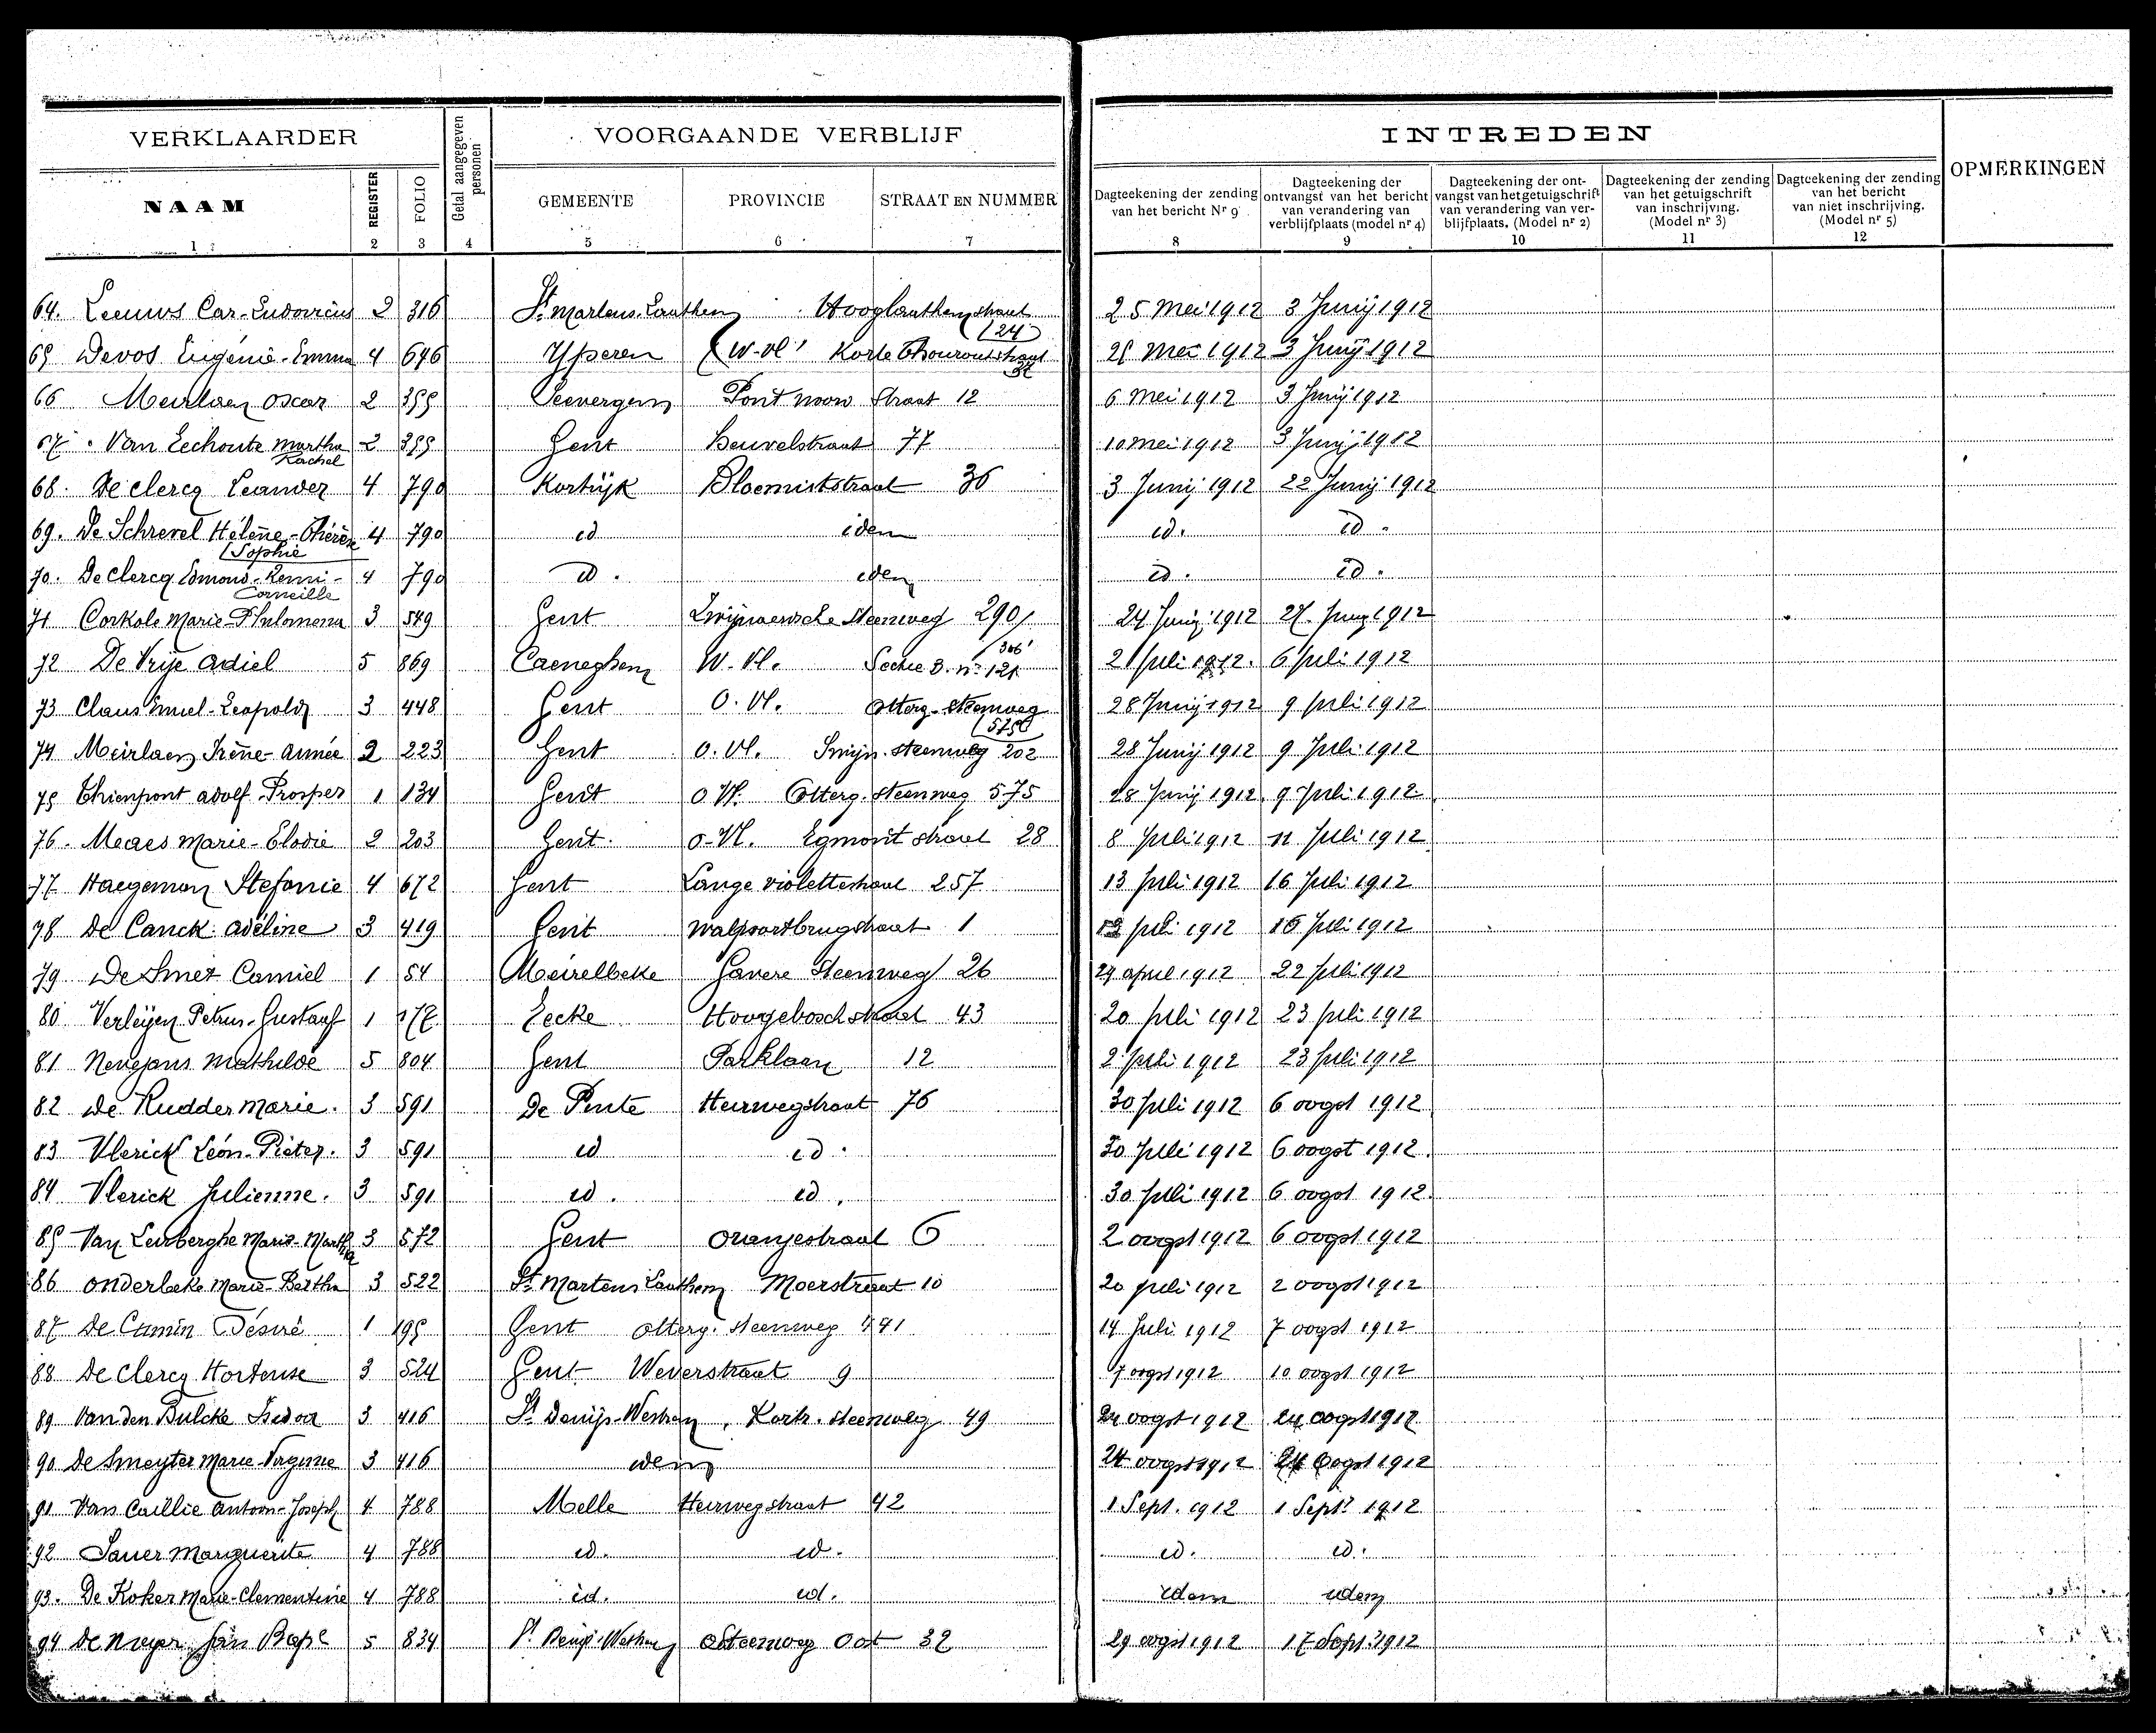 VERKLAARDER
Getal aangegeven personen
VOORGAANDE VERBLIJF
INTREDEN
OPMERKINGEN
NAAM REGISTER FOLIO GEMEENTE PROVINCIE STRAAT EN NUMMER
Dagteekening der zending van het bericht Nr 9
Dagteekening der ontvangst van het bericht van verandering van verblijfplaats (model nr 4)
Dagteekening der ontvangst van het getuigschrift van verandering van verblijfplaats. (Model nr 2)
Dagteekening der zending van het getuigschrift van inschrijving. (Model nr 3)
Dagteekening der zending van het bericht van niet inschrijving. (Model nr 5)
1 2 3 4 5 6 7 8 9 10 11 12
64. Leeuws Car-Ludovicus 2 316 St Martens-Lauthem Hooglauthemstraat (24) 25 Mei 1912 3 Junij 1912
65 Devos Eugénie-Emma 4 646 Yperen (W-Vl) Korte Thouroutstraat 2 Mei 1912 3 Junij 1912
66 Meirlaen Oscar 2 355 Seevergem Pont noow Straat 12 6 Mei 1912 3 Junij 1912
67 Van Eechoute Martha Rachel 2 355 Gent Heuvelstraat 77 10 Mei 1912 3 Junij 1912
68. De Clercq Leander 4 790 Kortrijk Bloemiststraat 36 3 Junij 1912 22 Junij 1912
69. De Schrevel Hélène-Thérèse (Sophie 4 790 id idem id. id.
70. De Clercq Edmond-Remi-Corneille 4 790 id. idem id. id.
71 Corkole Marie-Philomena 3 549 Gent Zwijnaersche Steenweg 290 24 Junij 1912 27 Junij 1912
72 De Vrije Adiel 5 869 Caeneghem W. Vl. Sectie 3. nr 121 /306 2 Juli 1912. 6 Juli 1912
73 Claus Emiel-Leopold 3 448 Gent O. Vl. Otterg-Steenweg (575 28 Junij 1912 9 Juli 1912
74 Meirlaen Irène-Aimée 2 223 Gent O. Vl. Swijn. Steenweg 202 28 Junij 1912 9 Juli 1912
75 Thienpont Adolf Prosper 1 134 Gent O Vl. Otterg. Steenweg 575 28 Junij 1912. 9 Juli 1912.
76. Meaes Marie-Elodie 2 203 Gent. O-Vl. Egmont straat 28 8 Juli 1912 11 Juli 1912
77 Haegeman Stefanie 4 672 Gent Lange violettestraat 257 13 Juli 1912 16 Juli 1912
78 De Canck Adéline 3 419 Gent Walpoortbrugstraat 1 Juli 1912 16 Juli 1912
79 De Smet Camiel 1 54 Meirelbeke Gavere Steenweg 26 29 April 1912 22 Juli 1912
80 Verleijen Petrus-Gustaaf 1 177 Eecke Hoogeboschstraat 43 20 Juli 1912 23 Juli 1912
81 Nevejans Mathilde 5 804 Gent Parklaan 12 2 Juli 1912 23 Juli 1912
82 De Rudder Marie. 3 591 De Pinte Heirwegstraat 76 30 Juli 1912 6 oogst 1912
83 Vlerick Léon-Pieter. 3 591 id id. 30 Juli 1912 6 oogst 1912.
84 Vlerick Julienne. 3 591 id. id. 30 Juli 1912 6 oogst 1912.
85 Van Lerberghe Marie-Martha 3 572 Gent Oranjestraat 6 2 oogst 1912 6 oogst 1912
86 Onderbeke Marie-Bertha 3 522 St Martens Lauthem Moerstraat 10 20 Juli 1912 2 oogst 1912
87 De Camin Désiré 1 195 Gent Otterg. Steenweg 441 14 Juli 1912 7 oogst 1912
88 De Clercq Hortense 3 524 Gent Weverstraat 9 7 oogst 1912 10 oogst 1912
89 Van den Bulcke Isidor 3 416 St Denijs-Westrem, Kortr. Steenweg 49 24 oogst 1912 24 oogst 1912
90 De Smeyter Marie-Virginie 3 416 idem 24 oogst 1912 24 oogst 1912
91 Van Caillie Antoon-Joseph 4 788 Melle Heirwegstraat 42 1 Sept. 1912 1 Sept. 1912
92 Sauer Marguerite 4 788 id. id. id. id.
93. De Koker Marie-Clementine 4 788 id. id. idem idem
94 De Meyer Jan Bapt 5 834 St Denijs-Westrem Steenweg Oost 32 29 oogst 1912 17 Sept 1912